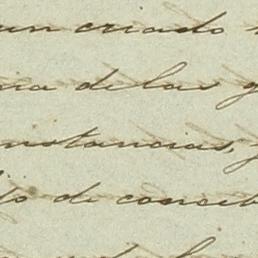 un criado
na de las
nstancias, y
to de conceb